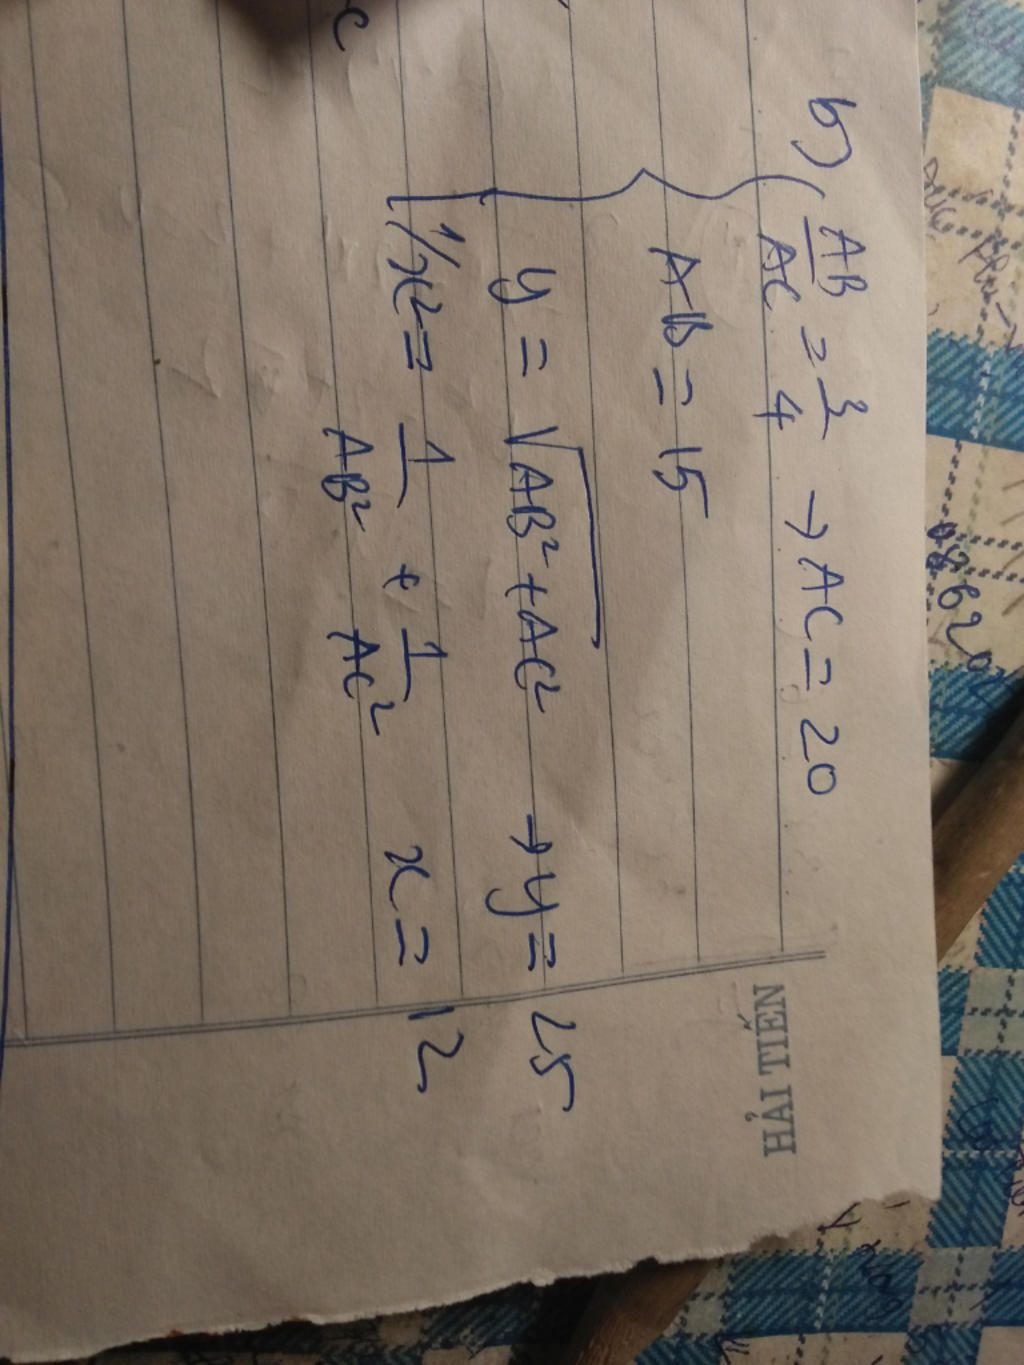 b) AB/AC = 3/4 → AC = 20
AB = 15
y = √AB² + AC² → y = 25
1/x² = 1/AB² + 1/AC² x = 12
HẢI TIẾN
c
08620